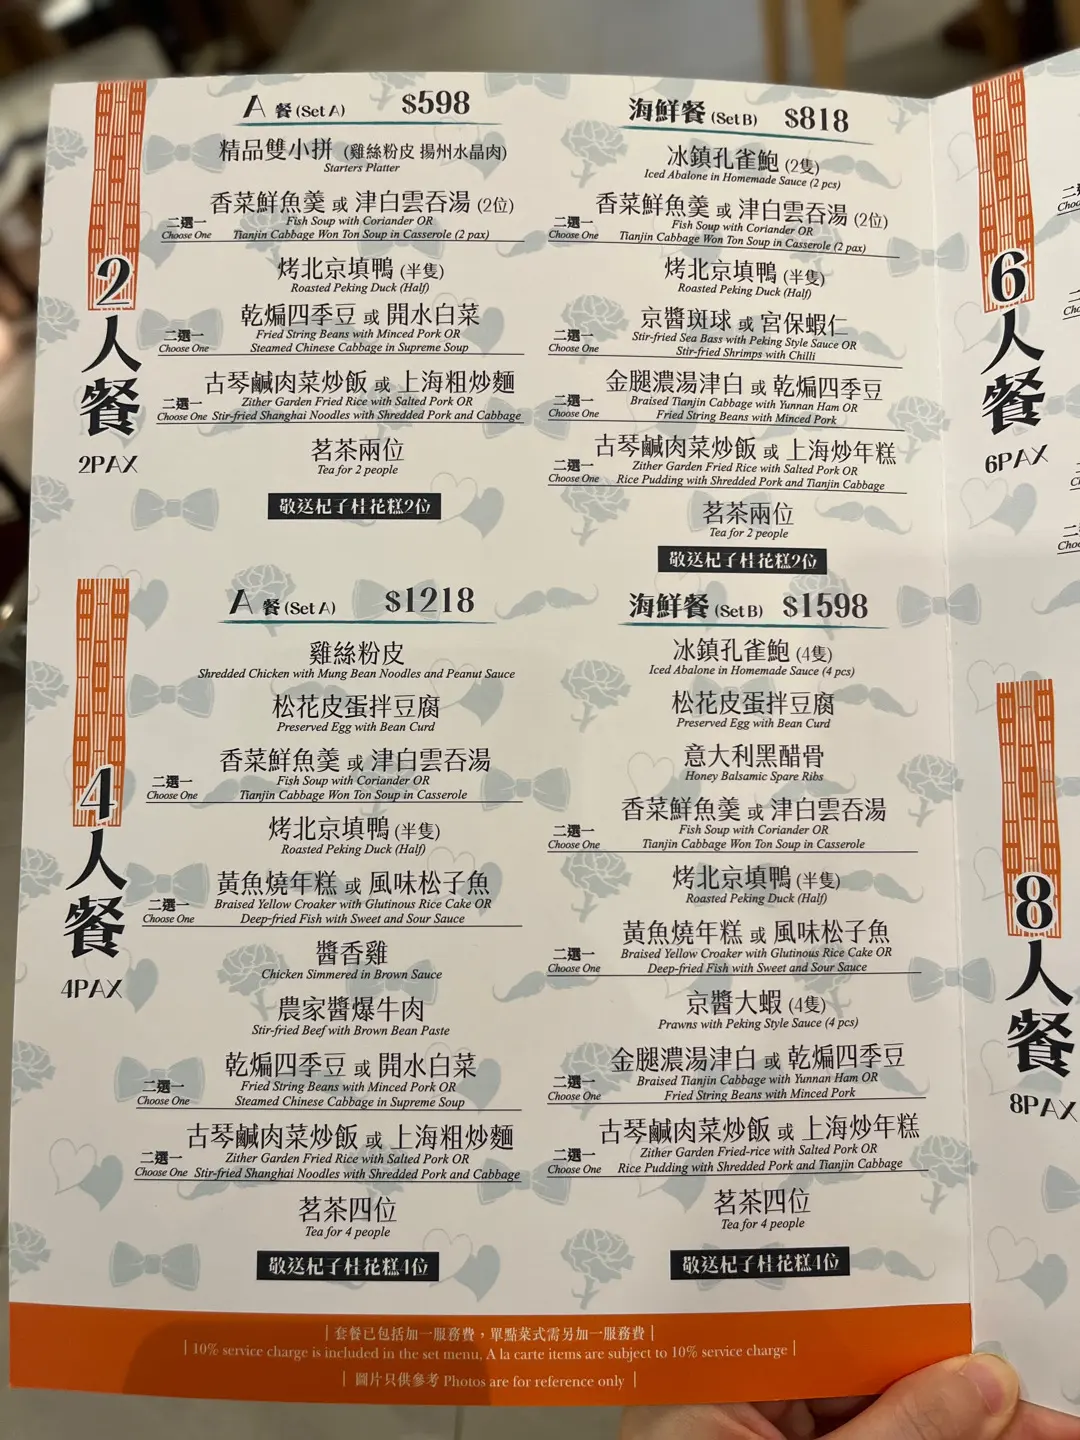 2
人
餐
2PAX
A 餐 (Set A) $598
精品雙小拼 (雞絲粉皮 揚州水晶肉)
Starters Platter
香菜鮮魚羹 或 津白雲吞湯 (2位)
二選一
Fish Soup with Coriander OR
Choose One Tianjin Cabbage Won Ton Soup in Casserole (2 pax)
烤北京填鴨 (半隻)
Roasted Peking Duck (Half)
乾煸四季豆 或 開水白菜
二選一
Fried String Beans with Minced Pork OR
Choose One Steamed Chinese Cabbage in Supreme Soup
古琴鹹肉菜炒飯 或 上海粗炒麵
二選一
Zither Garden Fried Rice with Salted Pork OR
Choose One Stir-fried Shanghai Noodles with Shredded Pork and Cabbage
茗茶兩位
Tea for 2 people
敬送杞子桂花糕2位
海鮮餐 (Set B) $818
冰鎮孔雀鮑 (2隻)
Iced Abalone in Homemade Sauce (2 pcs)
香菜鮮魚羹 或 津白雲吞湯 (2位)
二選一
Fish Soup with Coriander OR
Choose One Tianjin Cabbage Won Ton Soup in Casserole (2 pax)
烤北京填鴨 (半隻)
Roasted Peking Duck (Half)
京醬斑球 或 宮保蝦仁
二選一
Stir-fried Sea Bass with Peking Style Sauce OR
Choose One Stir-fried Shrimps with Chilli
金腿濃湯津白 或 乾煸四季豆
二選一
Braised Tianjin Cabbage with Yunnan Ham OR
Choose One Fried String Beans with Minced Pork
古琴鹹肉菜炒飯 或 上海炒年糕
二選一
Zither Garden Fried Rice with Salted Pork OR
Choose One Rice Pudding with Shredded Pork and Tianjin Cabbage
茗茶兩位
Tea for 2 people
敬送杞子桂花糕2位
4
人
餐
4PAX
A 餐 (Set A) $1218
雞絲粉皮
Shredded Chicken with Mung Bean Noodles and Peanut Sauce
松花皮蛋拌豆腐
Preserved Egg with Bean Curd
香菜鮮魚羹 或 津白雲吞湯
二選一
Fish Soup with Coriander OR
Choose One Tianjin Cabbage Won Ton Soup in Casserole
烤北京填鴨 (半隻)
Roasted Peking Duck (Half)
黃魚燒年糕 或 風味松子魚
二選一
Braised Yellow Croaker with Glutinous Rice Cake OR
Choose One Deep-fried Fish with Sweet and Sour Sauce
醬香雞
Chicken Simmered in Brown Sauce
農家醬爆牛肉
Stir-fried Beef with Brown Bean Paste
乾煸四季豆 或 開水白菜
二選一
Fried String Beans with Minced Pork OR
Choose One Steamed Chinese Cabbage in Supreme Soup
古琴鹹肉菜炒飯 或 上海粗炒麵
二選一
Zither Garden Fried Rice with Salted Pork OR
Choose One Stir-fried Shanghai Noodles with Shredded Pork and Cabbage
茗茶四位
Tea for 4 people
敬送杞子桂花糕4位
海鮮餐 (Set B) $1598
冰鎮孔雀鮑 (4隻)
Iced Abalone in Homemade Sauce (4 pcs)
松花皮蛋拌豆腐
Preserved Egg with Bean Curd
意大利黑醋骨
Honey Balsamic Spare Ribs
香菜鮮魚羹 或 津白雲吞湯
二選一
Fish Soup with Coriander OR
Choose One Tianjin Cabbage Won Ton Soup in Casserole
烤北京填鴨 (半隻)
Roasted Peking Duck (Half)
黃魚燒年糕 或 風味松子魚
二選一
Braised Yellow Croaker with Glutinous Rice Cake OR
Choose One Deep-fried Fish with Sweet and Sour Sauce
京醬大蝦 (4隻)
Prawns with Peking Style Sauce (4 pcs)
金腿濃湯津白 或 乾煸四季豆
二選一
Braised Tianjin Cabbage with Yunnan Ham OR
Choose One Fried String Beans with Minced Pork
古琴鹹肉菜炒飯 或 上海炒年糕
二選一
Zither Garden Fried-rice with Salted Pork OR
Choose One Rice Pudding with Shredded Pork and Tianjin Cabbage
茗茶四位
Tea for 4 people
敬送杞子桂花糕4位
| 套餐已包括加一服務費，單點菜式需另加一服務費 |
| 10% service charge is included in the set menu, A la carte items are subject to 10% service charge |
| 圖片只供參考 Photos are for reference only |
6
人
餐
6PAX
8
人
餐
8PAX